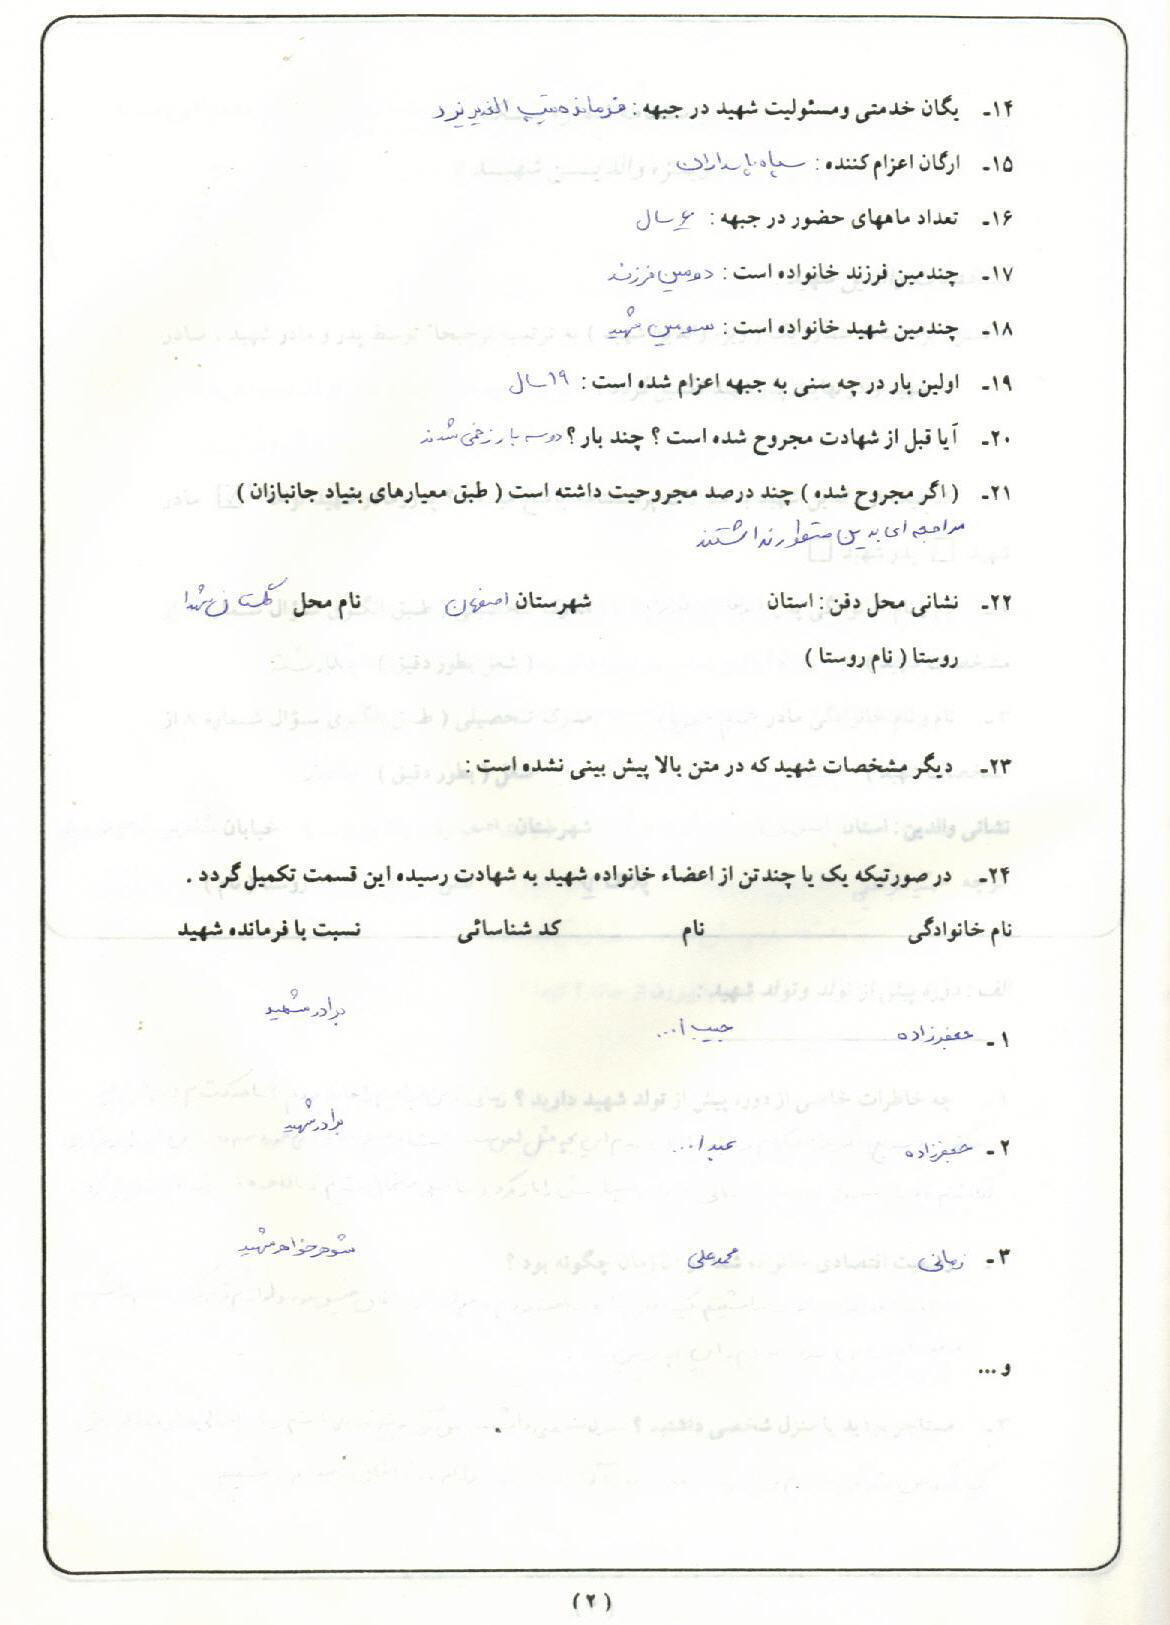 ۱۴ـ یگان خدمتی ومسئولیت شهید در جبهه : فرمانده تیپ الغدیر یزد
۱۵ـ ارگان اعزام کننده : سپاه پاسداران
۱۶ـ تعداد ماههای حضور در جبهه : ۶ سال
۱۷ـ چندمین فرزند خانواده است : دومین فرزند
۱۸ـ چندمین شهید خانواده است : سومین شهید
۱۹ـ اولین بار در چه سنی به جبهه اعزام شده است : ۱۹ سال
۲۰ـ آیا قبل از شهادت مجروح شده است ؟ چند بار ؟ دوسه بار زخمی شدند
۲۱ـ ( اگر مجروح شده ) چند درصد مجروحیت داشته است ( طبق معیارهای بنیاد جانبازان )
مراجعه ای بدین منظور نداشتند
۲۲ـ نشانی محل دفن : استان شهرستان اصفهان نام محل گلستان شهدا
روستا ( نام روستا )
۲۳ـ دیگر مشخصات شهید که در متن بالا پیش بینی نشده است :
۲۴ـ در صورتیکه یک یا چندتن از اعضاء خانواده شهید به شهادت رسیده این قسمت تکمیل گردد .
نام خانوادگی نام کد شناسائی نسبت با فرمانده شهید
۱ـ جعفرزاده حبیب ا... برادر شهید
۲ـ جعفرزاده عبدا... برادر شهید
۳ـ زمانی محمدعلی شوهر خواهر شهید
و ...
( ۲ )